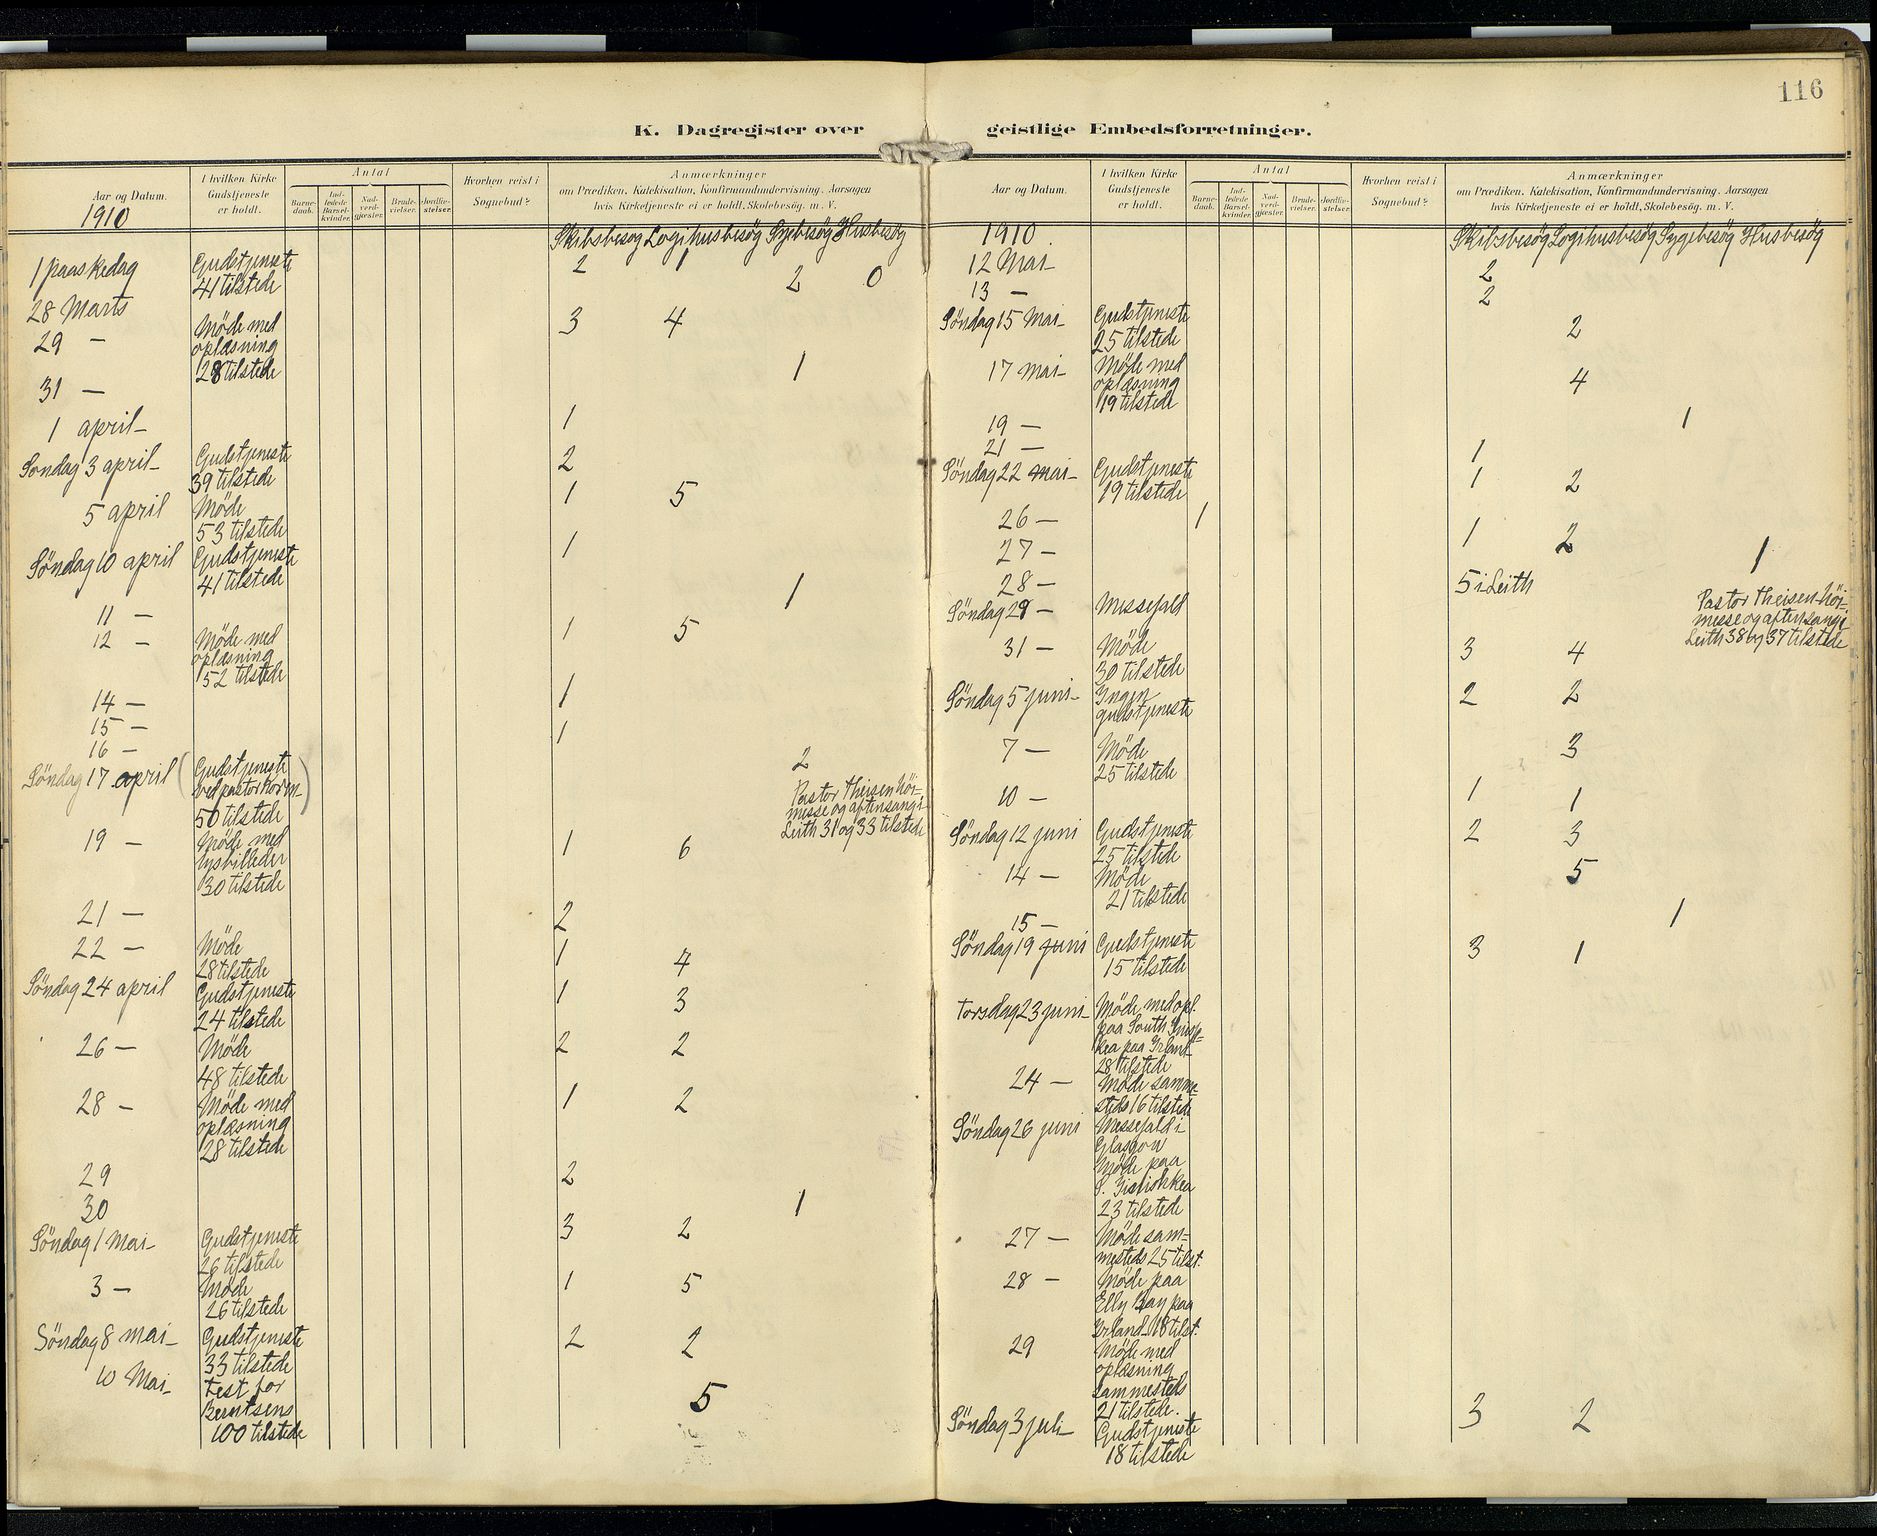 116
K. Dagregister over geistlige Embedsforretninger.
Aar og Datum.
1910
I hvilken Kirke
Gudstjeneste
er holdt.
Antal
Barne-
daab.
Ind-
ledede
Barsel-
kvinder.
Nad-
verd-
gjester.
Brude-
vielser.
Jordfæ-
stelser.
Hvorhen reist i
Sognebud?
Anmærkninger
om Prædiken, Katekisation, Konfirmandundervisning. Aarsagen
hvis Kirketjeneste ei er holdt, Skolebesøg. m. V.
Skibsbesøg Logihusbesøg Sygebesøg Husbesøg
1 paaskedag Gudstjeneste 2 1
41 tilstede 2 0
28 Marts Møde med 3 4
29 — oplæsning
28 tilstede 1
31 —
1 april— 1
Søndag 3 april— Gudstjeneste 2
39 tilstede
5 april Møde 1 5
53 tilstede
Søndag 10 april Gudstjeneste 1
41 tilstede
11 — 1
12 — Møde med 1 5
oplæsning
52 tilstede
14 — 1
15 — 1
16 — 2
Søndag 17 april (Gudstjeneste
ved pastor
50 tilstede)
Pastor Theisen høi-
messe og aftensang i
Leith 31 og 33 tilstede
19 — Møde med 1 6
lysbilleder
30 tilstede
21 — 2
22 — Møde 1 4
28 tilstede
Søndag 24 april Gudstjeneste 1 3
24 tilstede
26 — Møde 2 2
48 tilstede
28 — Møde med 1 2
oplæsning
28 tilstede
29 2
30 1
Søndag 1 Mai— Gudstjeneste 3 2
26 tilstede
3 — Møde 1 5
26 tilstede
Søndag 8 mai— Gudstjeneste 2 2
33 tilstede
10 Mai— Fest for 5
Berntsens
100 tilstede
Aar og Datum.
I hvilken Kirke
Gudstjeneste
er holdt.
Antal
Barne-
daab.
Ind-
ledede
Barsel-
kvinder.
Nad-
verd-
gjester.
Brude-
vielser.
Jordfæ-
stelser.
Hvorhen reist i
Sognebud?
Anmærkninger
om Prædiken, Katekisation, Konfirmandundervisning. Aarsagen
hvis Kirketjeneste ei er holdt, Skolebesøg. m. V.
1910. Skibsbesøg Logihusbesøg Sygebesøg Husbesøg
12 Mai— 2
13 — 2
Søndag 15 Mai— Gudstjeneste 2
25 tilstede
17 mai— Møde med 4
oplæsning
19 tilstede
19 — 1
21 — 1
Søndag 22 mai— Gudstjeneste 1 2
19 tilstede
26 — 1 1 2
27 — 1
28 — 5 i Leith
Søndag 29 — Messefald
Pastor Theisen høi-
messe og aftensang i
Leith 38 og 37 tilstede
31 — Møde 3 4
30 tilstede
Søndag 5 juni— Ingen 2 2
gudstjeneste
7 — Møde 3
25 tilstede
10 — 1 1
Søndag 12 juni Gudstjeneste 2 3
25 tilstede
14 — Møde 5
21 tilstede
15 — 1
Søndag 19 juni Gudstjeneste 3 1
15 tilstede
Torsdag 23 juni— Møde med opl.
paa South Inish=
kea paa Irland
28 tilstede
24 — Møde samme-
steds 16 tilstede
Søndag 26 juni Messefald i
Glasgow
Møde paa
S. Inishkea
23 tilstede
27 — Møde sam-
mesteds 25 tilst.
28 — Møde paa
Elly Bay paa
Irland 18 tilst.
29 Møde med
oplæsning
sammesteds
21 tilstede.
Søndag 3 juli— Gudstjeneste 3 2
18 tilstede